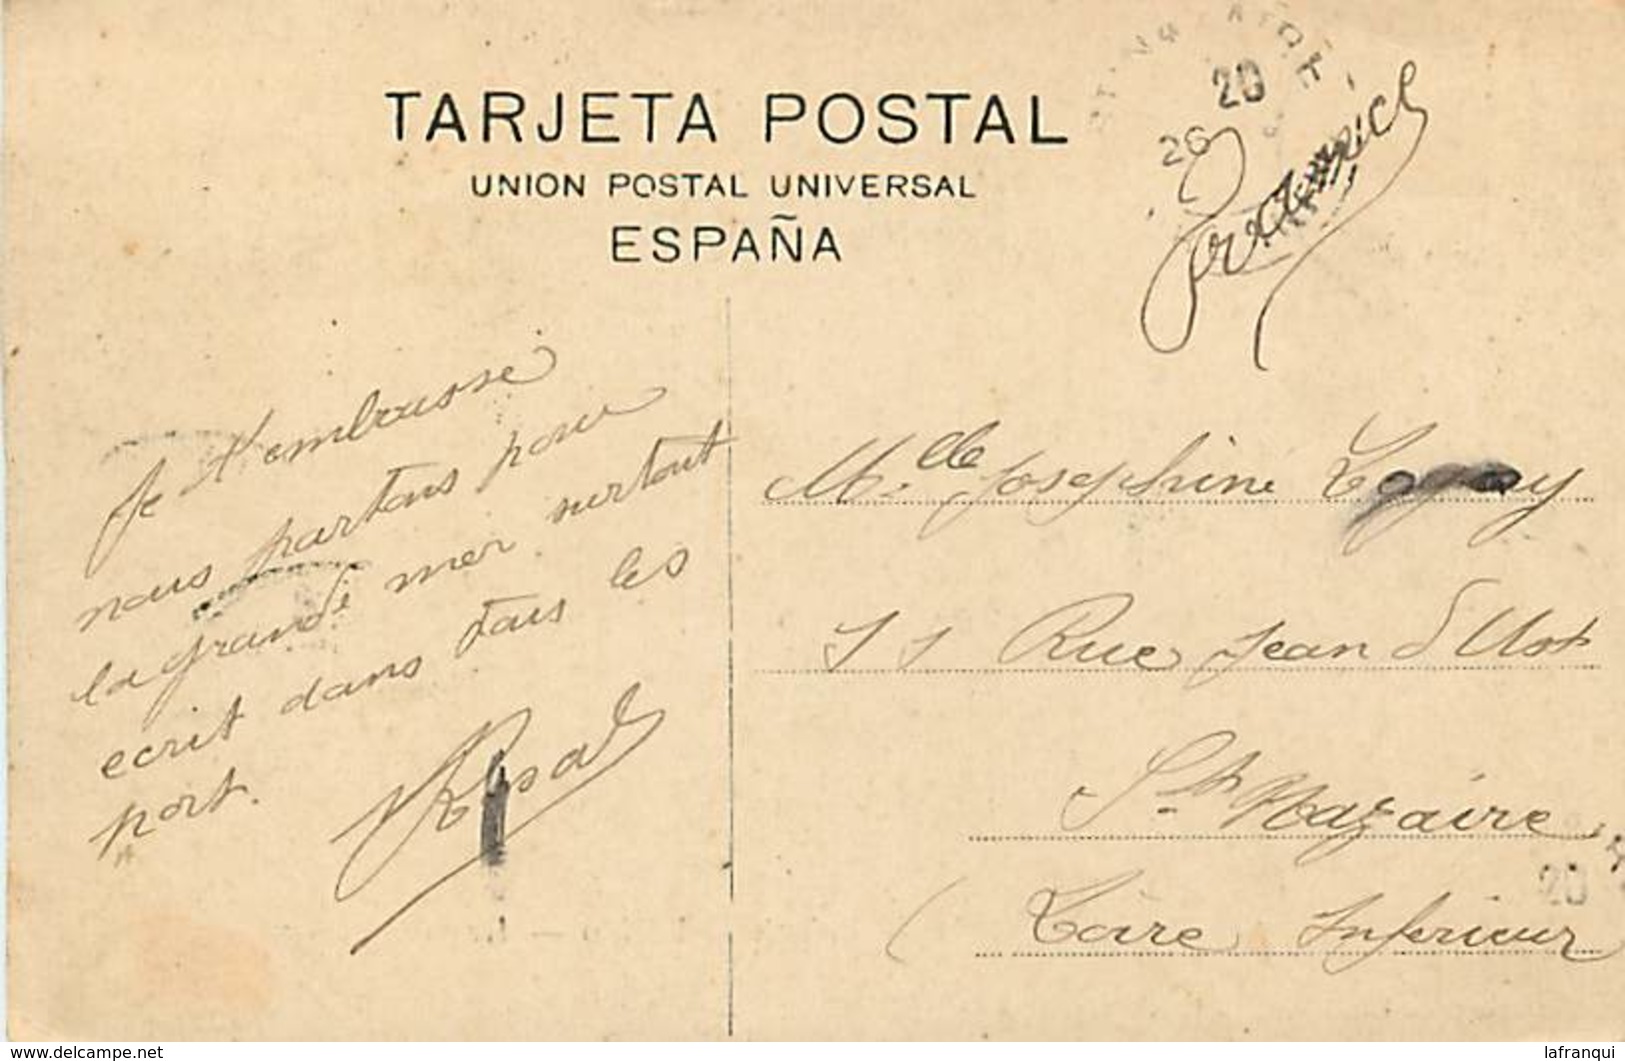 TARJETA POSTAL
UNION POSTAL UNIVERSAL
ESPAÑA
20
26
Je t'embrasse
nous partons pour
la grande mer surtout
ecrit dans tous les
port.
Melle Josephine
11 Rue Jean d'Ust
St Nazaire
Loire Inferieur
20
www.delcampe.net
lafranqui